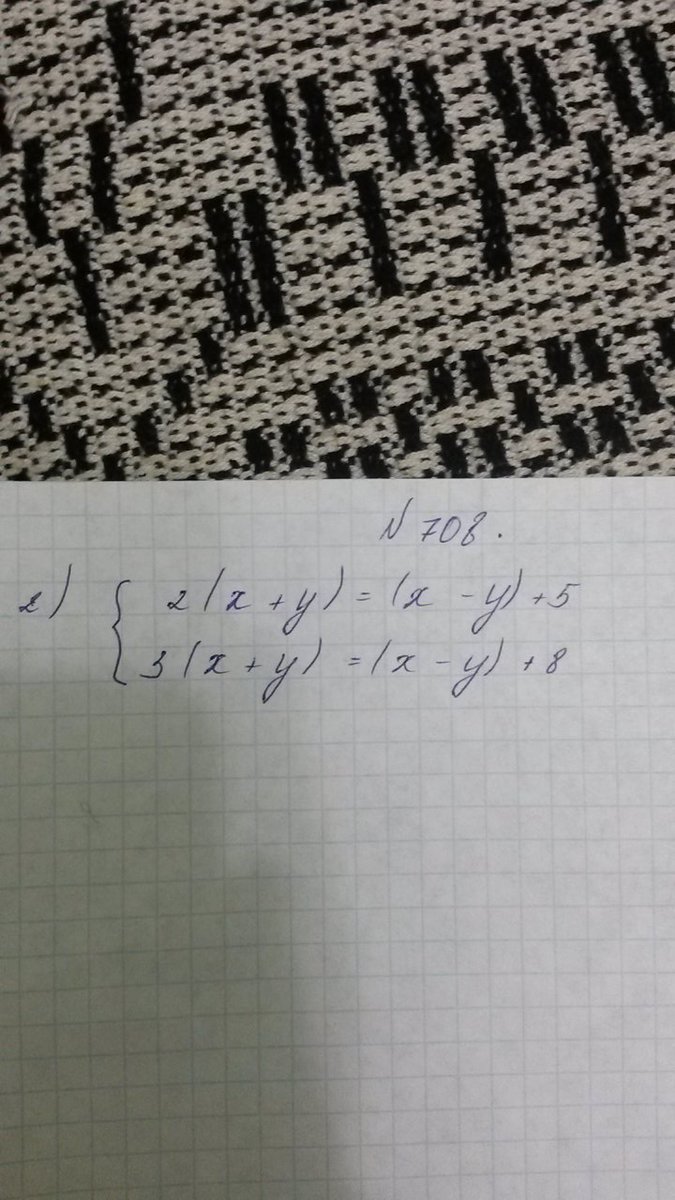 № 708.
2) { 2(x + y) = (x - y) + 5
3(x + y) = (x - y) + 8